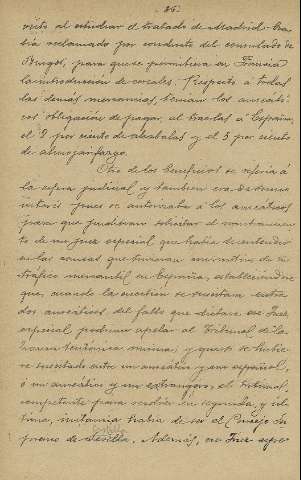 - 25 -
visto al estudiar el tratado de Madrid ha-
bía reclamado por conducto del consulado de
Burgos, para que se permitiera en Francia
la introducción de corales. Respecto a todas
las demás mercancías, tenían los
obligación de pagar, al traerlas á España,
el 2 por ciento de alcabalas y el 3 por ciento
de almojarifazgo.
Otro de los beneficios se refería á
la esfera judicial y también era de sumo
interés pues se autorizaba á los
para que pudieran solicitar el nombramien-
to de un Juez especial que habría de entender
en las causas que tuvieran con motivo de su
tráfico mercantil en España, estableciéndose
que, cuando la cuestión se suscitara entre
dos del fallo que dictare ese Juez
especial, podrían apelar al Tribunal de la
misma, y que si se hubie-
re suscitado entre un y un español,
ó un y un extranjero, el tribunal
competente para resolver en segunda, y úl-
tima, instancia habría de ser el Consejo Su-
premo de Castilla. Además, ese Juez espe-